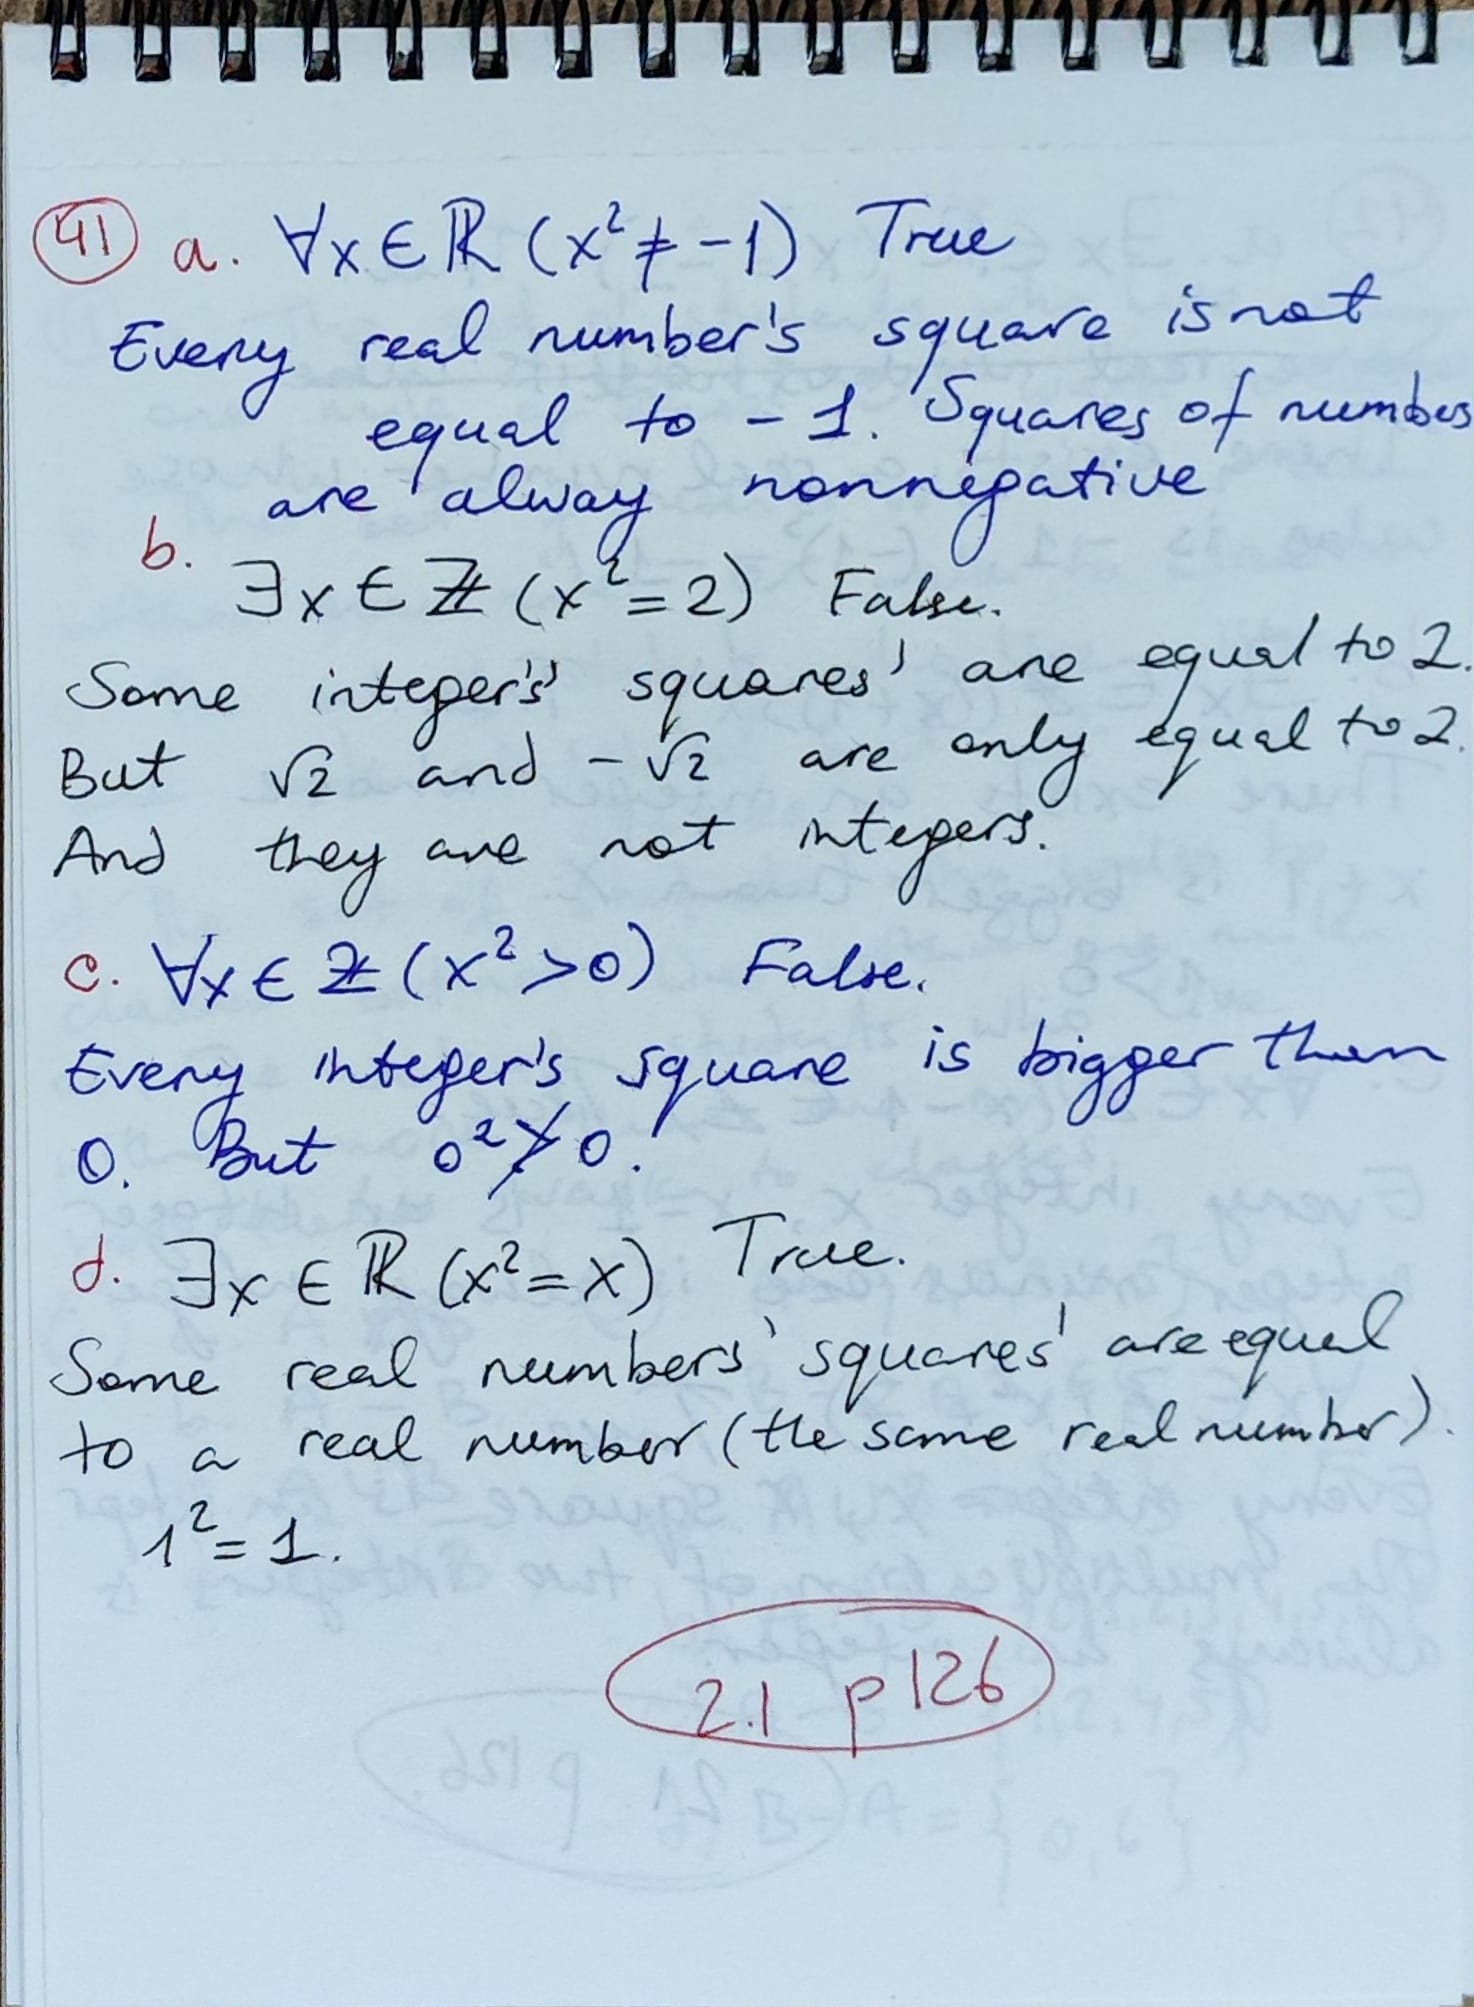 41 a. ∀x ∈ ℝ (x² ≠ -1) True
Every real number's square is not
equal to - 1. Squares of numbers
are alway nonnegative
b.
∃x ∈ ℤ (x² = 2) False.
Some integer's' squares' are equal to 2.
But √2 and -√2 are only equal to 2.
And they are not integers.
c. ∀x ∈ ℤ (x² > 0) False.
Every integer's square is bigger than
0. But 0² ≯ 0.
d. ∃x ∈ ℝ (x² = x) True.
Some real numbers' squares' are equal
to a real number (the same real number).
1² = 1.
2.1 p126